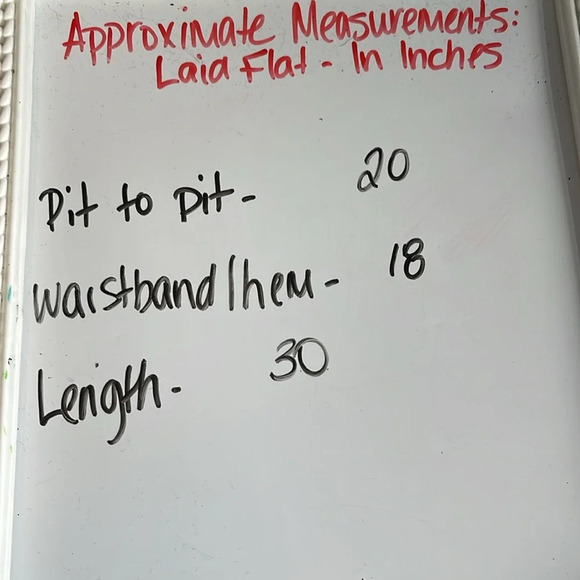 Approximate Measurements:
Laid Flat - In Inches
Pit to pit - 20
Waistband/hem - 18
Length - 30